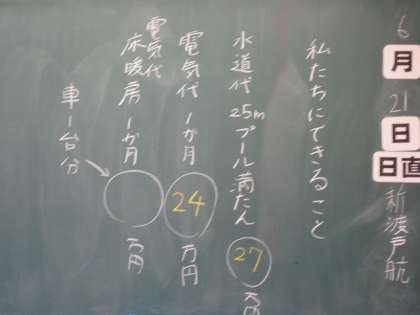 6月21日
日直 新渡戸航
私たちにできること
水道代 25mプール満たん 27万円
電気代 1か月 24万円
電気代
床暖房 1か月 万円
車1台分